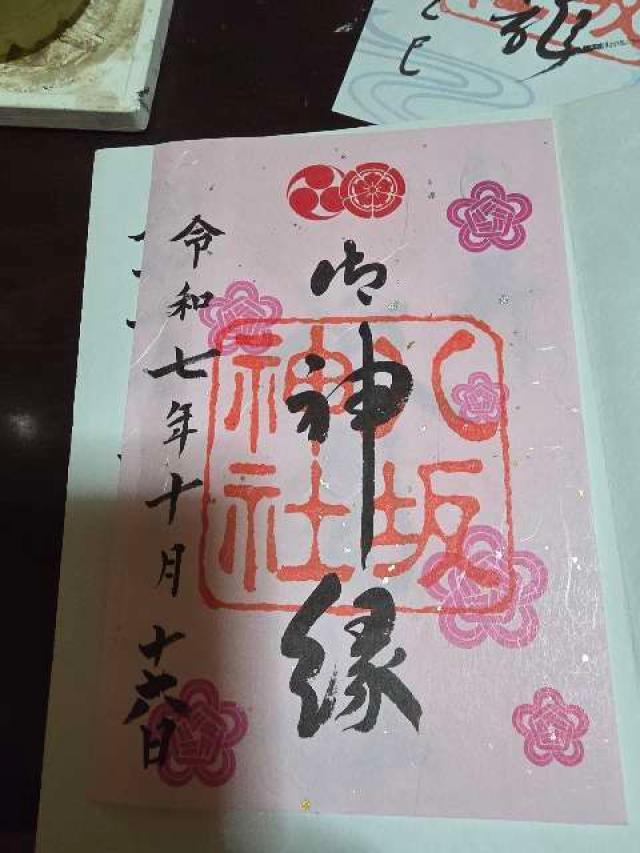 御神縁
八坂神社
令和七年十月十六日
龍